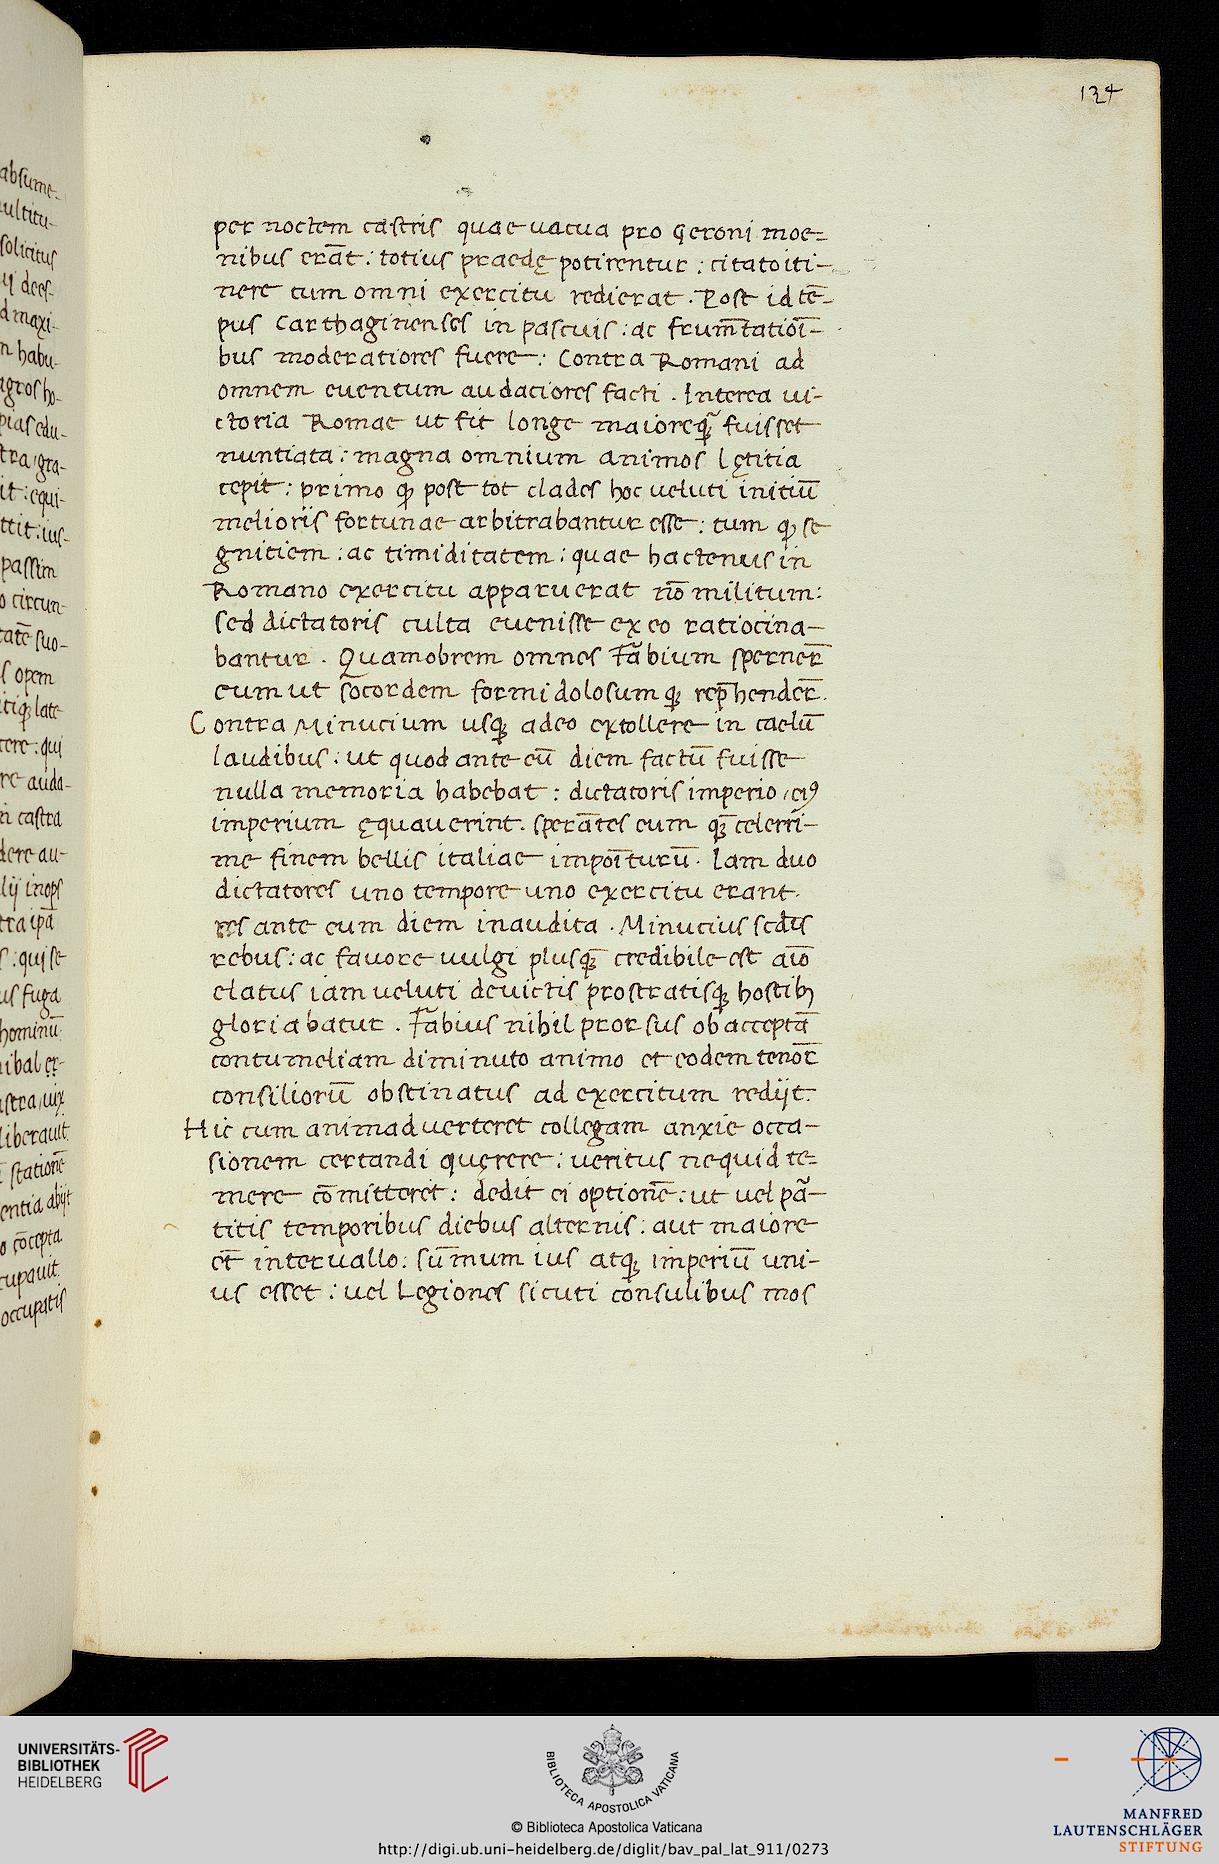 134
per noctem castris quae uacua pro Geroni moe-
nibus erāt: totius praedę potirentur: citato iti-
nere cum omni exercitu redierat. Post id tē-
pus Carthaginenses in pascuis: ac frum̄tatioī-
bus moderatiores fuere: Contra Romani ad
omnem euentum audaciores facti. Interea ui-
ctoria Romae ut fit longe maiore fuisset
nuntiata: magna omnium animos lętitia
cepit: primo ꝙ post tot clades hoc ueluti initiū
melioris fortunae arbitrabantur esse: tum ꝙ se
gnitiem: ac timiditatem: quae hactenus in
Romano exercitu apparuerat nō militum:
sed dictatoris culta euenisse ex eo ratiocina-
bantur. Quamobrem omnes Fabium sperner̄
eum ut socordem formidolosumꝙ rep̄hender̄.
Contra Minucium usꝙ adeo extollere in caelū
laudibus: ut quod ante eū diem factū fuisse
nulla memoria habebat: dictatoris imperio, eiꝰ
imperium ęquauerint. sperātes eum celerri-
me finem bellis italiae impoīturū. Iam duo
dictatores uno tempore uno exercitu erant.
res ante eum diem inaudita. Minucius scd̄is
rebus: ac fauore uulgi plusꝙ̄ credibile est aīo
elatus iam ueluti deuictis prostratisꝙ hostibꝫ
gloriabatur. Fabius nihil prorsus ob acceptā
contumeliam diminuto animo et eodem tenor̄
consiliorū obstinatus ad exercitum redijt.
Hic cum animaduerteret collegam anxie occa-
sionem certandi quęrere: ueritus nequid te-
mere cōmitteret: dedit ei optionē: ut uel pā-
titis temporibus diebus alternis: aut maiore
et̄ interuallo: sūmum ius atꝙ imperiū uni-
us esset: uel Legiones sicuti consulibus mos
UNIVERSITÄTS-
BIBLIOTHEK
HEIDELBERG
BIBLIOTECA APOSTOLICA VATICANA
© Biblioteca Apostolica Vaticana
http://digi.ub.uni-heidelberg.de/diglit/bav_pal_lat_911/0273
MANFRED
LAUTENSCHLÄGER
STIFTUNG